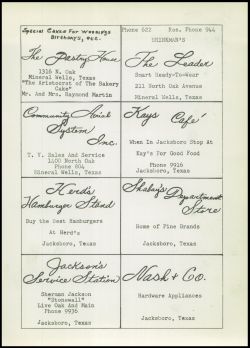 Special Cakes For Weddings
Birthdays, etc.
The Pastry House
1316 N. Oak
Mineral Wells, Texas
"The Aristocrat of The Bakery
Cake"
Mr. And Mrs. Raymond Martin
Phone 622 Res. Phone 944
SHINKMAN'S
The Leader
Smart Ready-To-Wear
211 North Oak Avenue
Mineral Wells, Texas
Community Aerial
System
Inc.
T. V. Sales And Service
1400 North Oak
Phone 804
Mineral Wells, Texas
Kays Café
When In Jacksboro Stop At
Kay's For Good Food
Phone 9926
Jacksboro, Texas
Herd's
Hamburger Stand
Buy the Best Hamburgers
At Herd's
Jacksboro, Texas
Department
Store
Home of Fine Brands
Jacksboro, Texas
Jackson's
Service Station
Sherman Jackson
"Stonewall"
Live Oak And Main
Phone 9936
Jacksboro, Texas
Nash & Co.
Hardware Appliances
Jacksboro, Texas